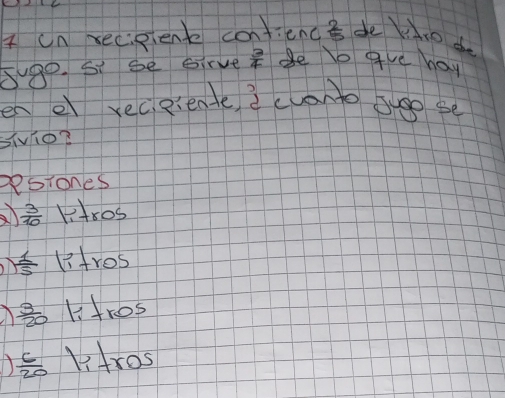 7 un recipiente contiene de litro de
jugo. si se sirve de lo que hay
en el reciqiente, ¿ cuanto jugo se
sivio?
opsiones
a) 3/10 litros
litros
) 3/20 litros
) 6/20 litros